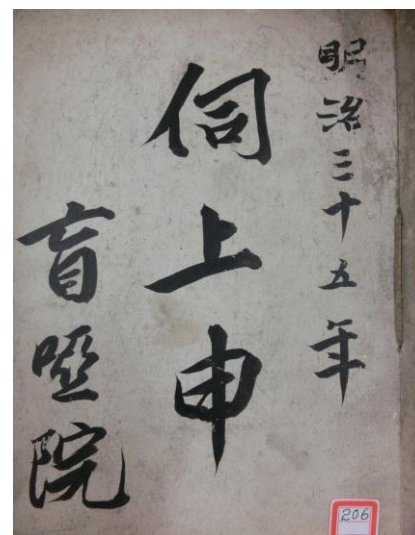 明治三十五年
伺上申
盲唖院
206